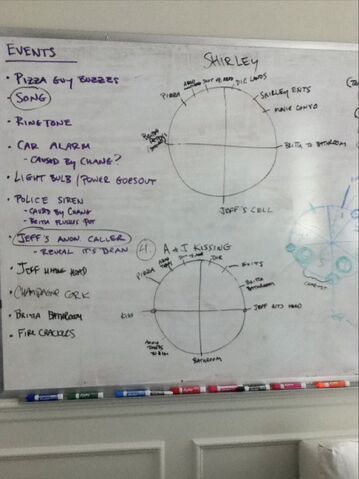 EVENTS
• PIZZA GUY BUZZES
• SONG
• RINGTONE
• CAR ALARM
- CAUSED BY CHANG?
• LIGHT BULB / POWER GOES OUT
• POLICE SIREN
- CAUSED BY CHANG
- BRITA FLUSHES POT
• JEFF'S ANON. CALLER
- REVEAL IT'S DEAN
• JEFF HEAD
• CHAMPAGNE CORK
• BRITTA BATHROOM
• FIRE CRACKERS
SHIRLEY
PIZZA
DIE LANDS
SHIRLEY EXITS
MOVIE CONVO
BRITTA TO BATHROOM
JEFF'S CELL
4. A & J KISSING
PIZZA
DIE
EXITS
BRITTA
BATHROOM
JEFF HITS HEAD
KISS
BATHROOM